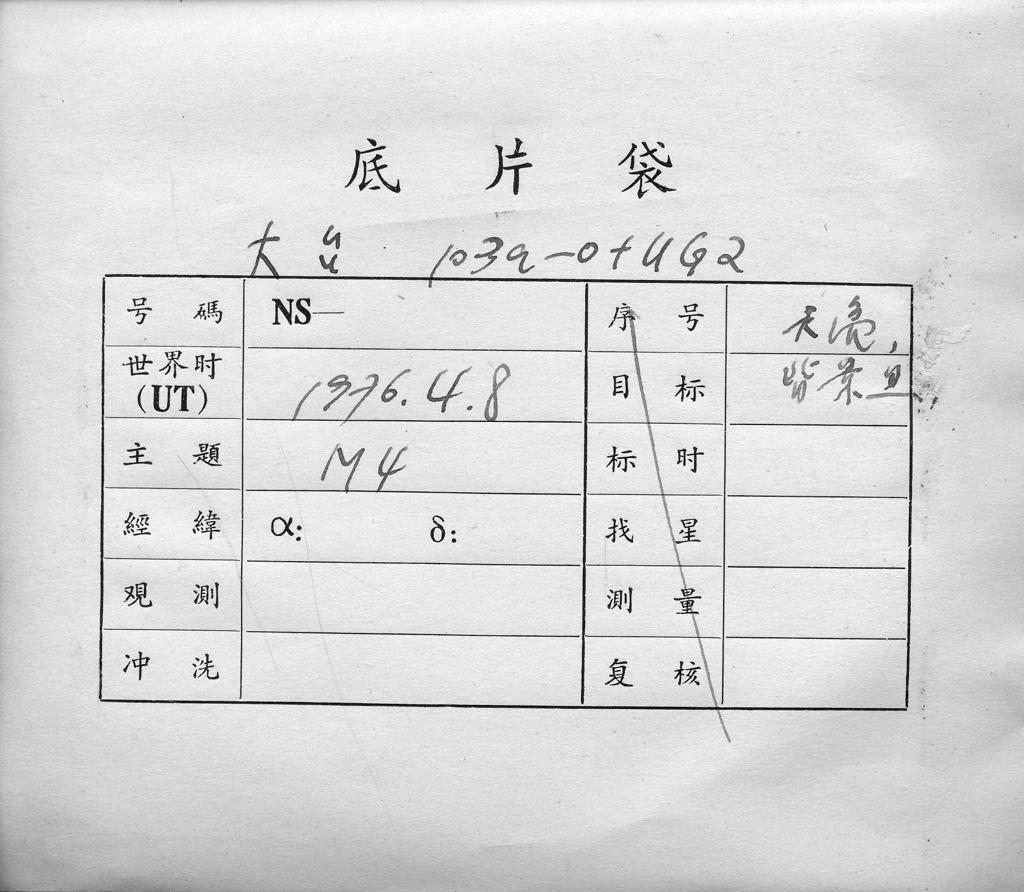 底片袋
大 103a-O+UG2
号碼 NS— 序号 天亮,
世界时 (UT) 1976.4.8 目标 背景
主題 M4 标时
經緯 α: δ: 找星
观測 測量
冲洗 复核